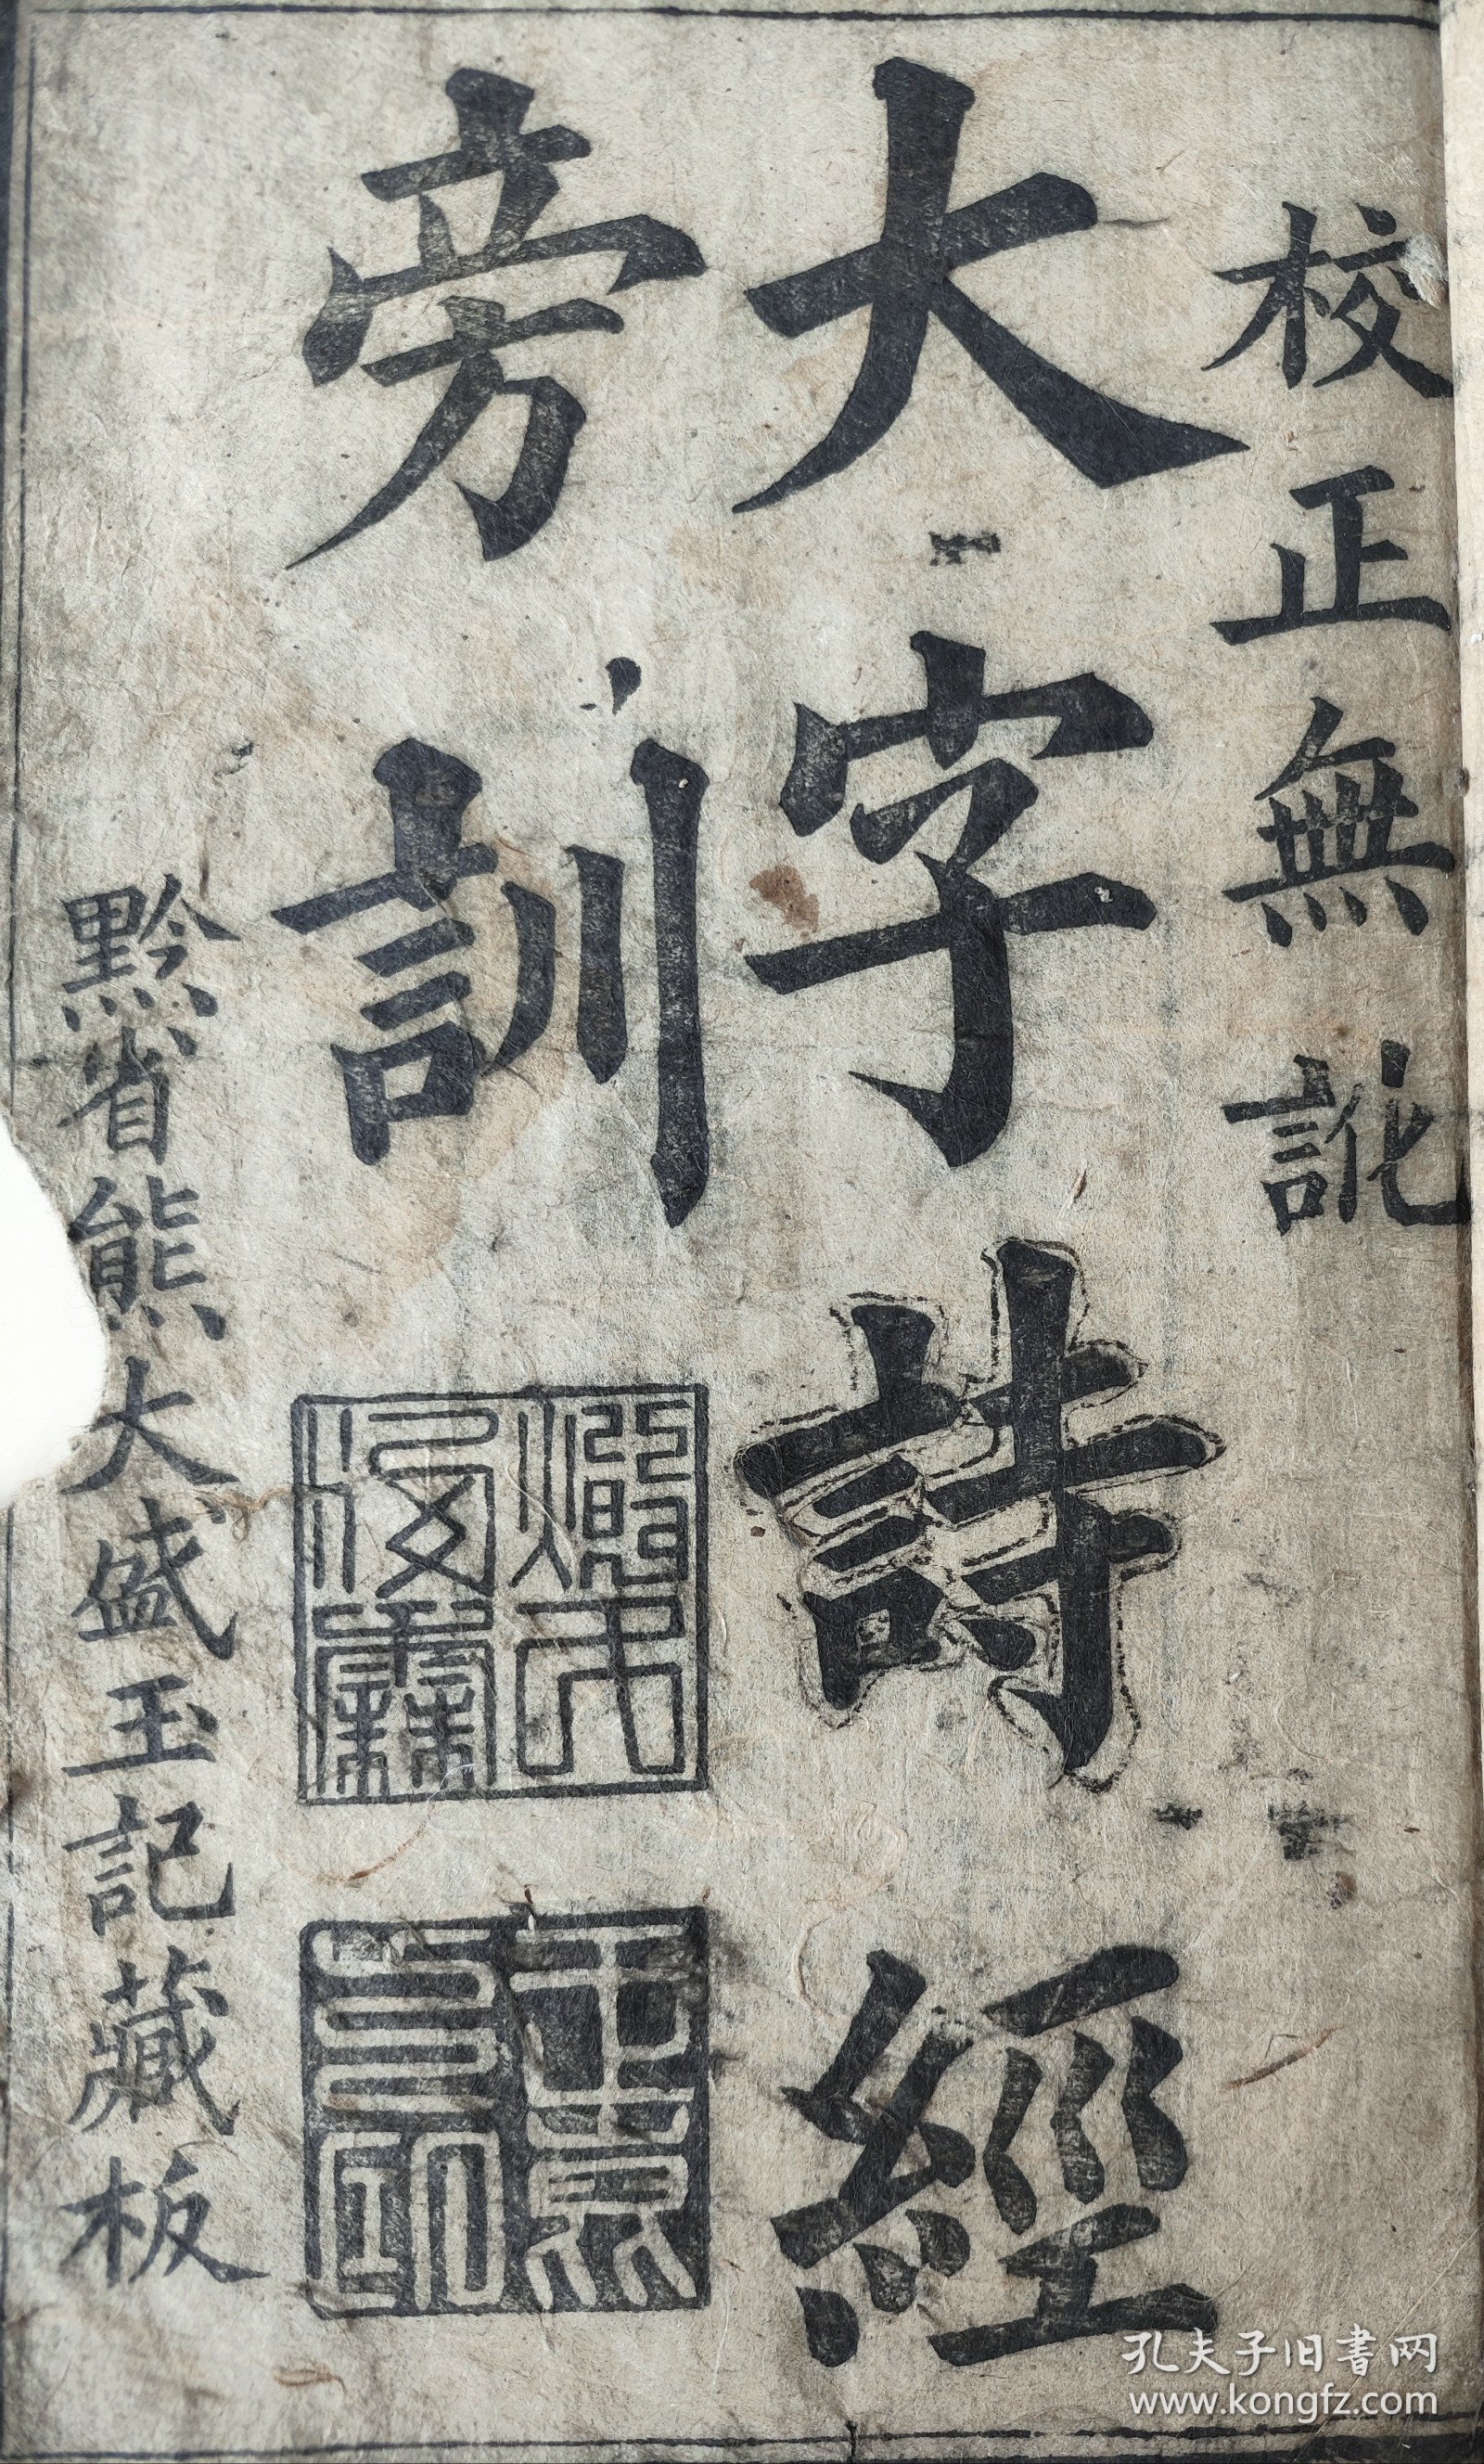 校正無訛
大字詩經
旁訓
黔省熊大盛玉記藏板
孔夫子旧書网
www.kongfz.com